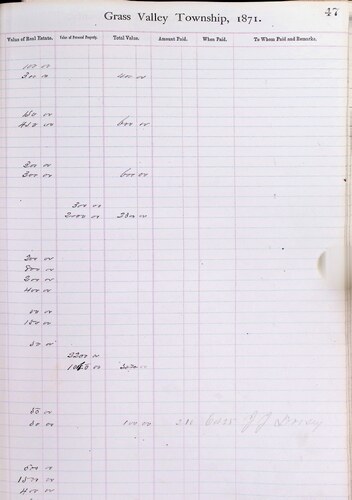 47
Grass Valley Township, 1871.
Value of Real Estate. Value of Personal Property. Total Value. Amount Paid. When Paid. To Whom Paid and Remarks.
100 00
300 00 400 00
150 00
450 00 600 00
300 00
300 00 600 00
300 00
2000 00
200 00
800 00
200 00
400 00
50 00
150 00
50 00
2200 00
50 00
50 00 100 00
500 00
1500 00
400 00